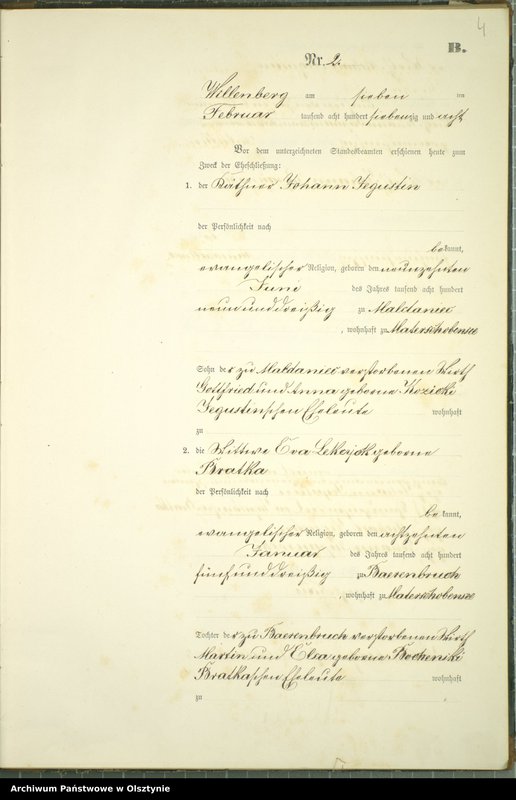 4
B.
Nr. 2.
Willenberg am sieben ten
Februar tausend acht hundert siebenzig und acht
Vor dem unterzeichneten Standesbeamten erschienen heute zum
Zweck der Eheschließung:
1. der Käthner Johann Jegustin
der Persönlichkeit nach
bekannt,
evangelischer Religion, geboren den neunzehnten
Juni des Jahres tausend acht hundert
neununddreißig zu Maldaniec
, wohnhaft zu Materschobensee
Sohn der zu Maldaniec verstorbenen Wirth
Gottfried und Anna geborne Kozicki
Jegustinschen Eheleute wohnhaft
zu
2. die Wittwe Eva Lekzyck geborne
Bratka
der Persönlichkeit nach
bekannt,
evangelischer Religion, geboren den achtzehnten
Januar des Jahres tausend acht hundert
fünfunddreißig zu Baerenbruch
, wohnhaft zu Materschobensee
Tochter der zu Baerenbruch verstorbenen Wirth
Martin und Elsa geborne Bochenski
Bratkaschen Eheleute wohnhaft
zu
Archiwum Państwowe w Olsztynie